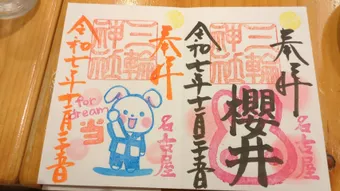 奉拝
三輪
神社
令和七年十二月二十五日
for
dream
当
名古屋
奉拝
三輪
神社
櫻井
令和七年十二月二十五日
名古屋